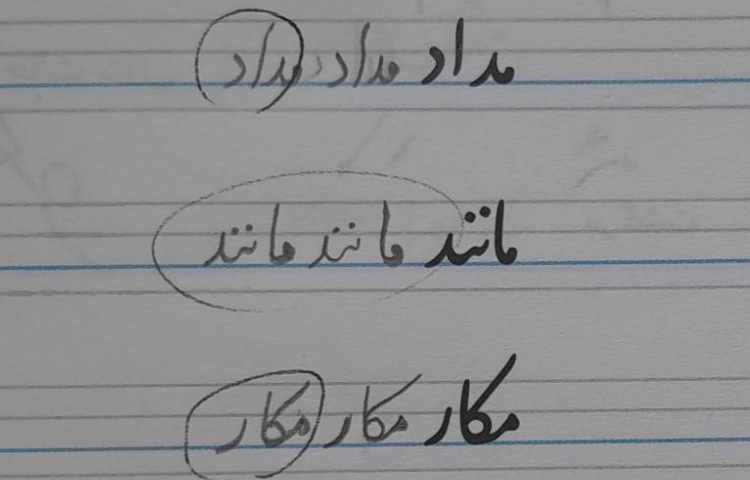 مداد مداد مداد
مانند مانند مانند
مکار مکار مکار